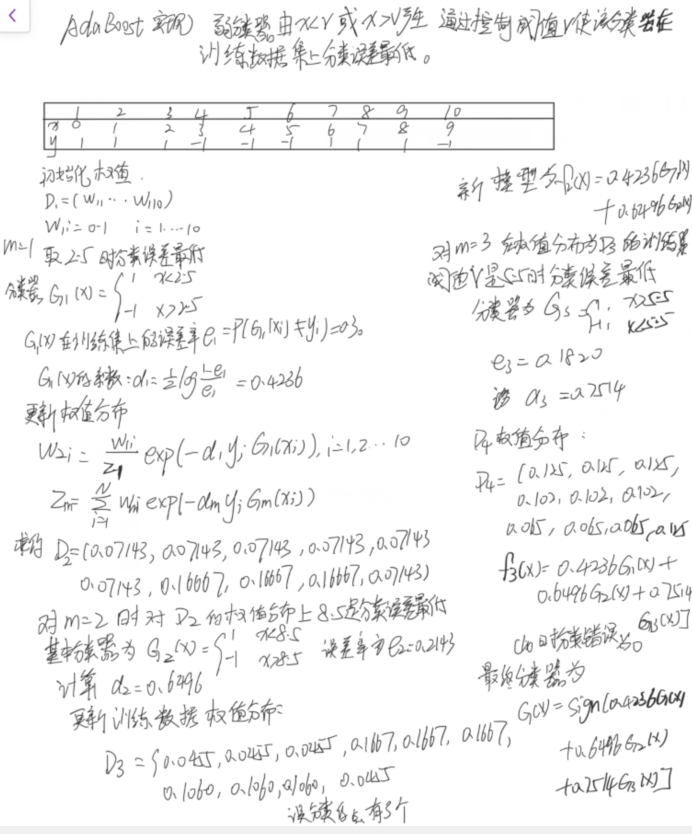 AdaBoost 实现) 弱分类器由x<v 或 x>v产生 通过控制阈值v使该分类器在
训练数据集上分类误差最低。
1 2 3 4 5 6 7 8 9 10
x 0 1 2 3 4 5 6 7 8 9
y 1 1 1 -1 -1 -1 1 1 1 -1
初始化权值.
D₁=(W₁₁... W₁₁₀)
W₁i=0.1 i=1....10
m=1 取2.5时分类误差最低
分类器 G₁(x)={1 x<2.5
-1 x>2.5
G₁(x)在训练集上的误差率e₁=P(G₁(xi)≠yi)=0.3。
G₁(x)的系数:α₁=½log(1-e₁)/e₁ =0.4236
更新权值分布
W₂i= W₁i/Z₁ exp(-α₁yiG₁(xi)), i=1,2...10
Zm=Σ(i=1,N) Wmi exp(-αm yi Gm(xi))
求的 D₂=(0.07143, 0.07143, 0.07143, 0.07143, 0.07143
0.07143, 0.16667, 0.16667, 0.16667, 0.07143)
对m=2时对D₂的权值分布上8.5是分类误差最低
基本分类器为 G₂(x)={1 x<8.5
-1 x>8.5 误差率为e₂=0.2143
计算 α₂=0.6496
更新训练数据权值分布:
D₃={0.0455, 0.0455, 0.0455, 0.1667, 0.1667, 0.1667,
0.1060, 0.1060, 0.1060, 0.0455
误分类点有3个
新模型为f₂(x)=0.4236G₁(x)
+0.6496G₂(x)
对m=3 在权值分布为D₃的训练集
阈值V是5.5时分类误差最低
分类器为 G₃={1, x>5.5
-1, x<5.5
e₃=0.1820
α₃=0.7514
D₄权值分布:
D₄=(0.125, 0.125, 0.125,
0.102, 0.102, 0.102,
0.065, 0.065, 0.065, 0.125
f₃(x)=0.4236G₁(x)+
0.6496G₂(x)+0.7514
G₃(x)]
此时分类错误为0
最终分类器为
G(x)=sign[0.4236G₁(x)
+0.6496G₂(x)
+0.7514G₃(x)]